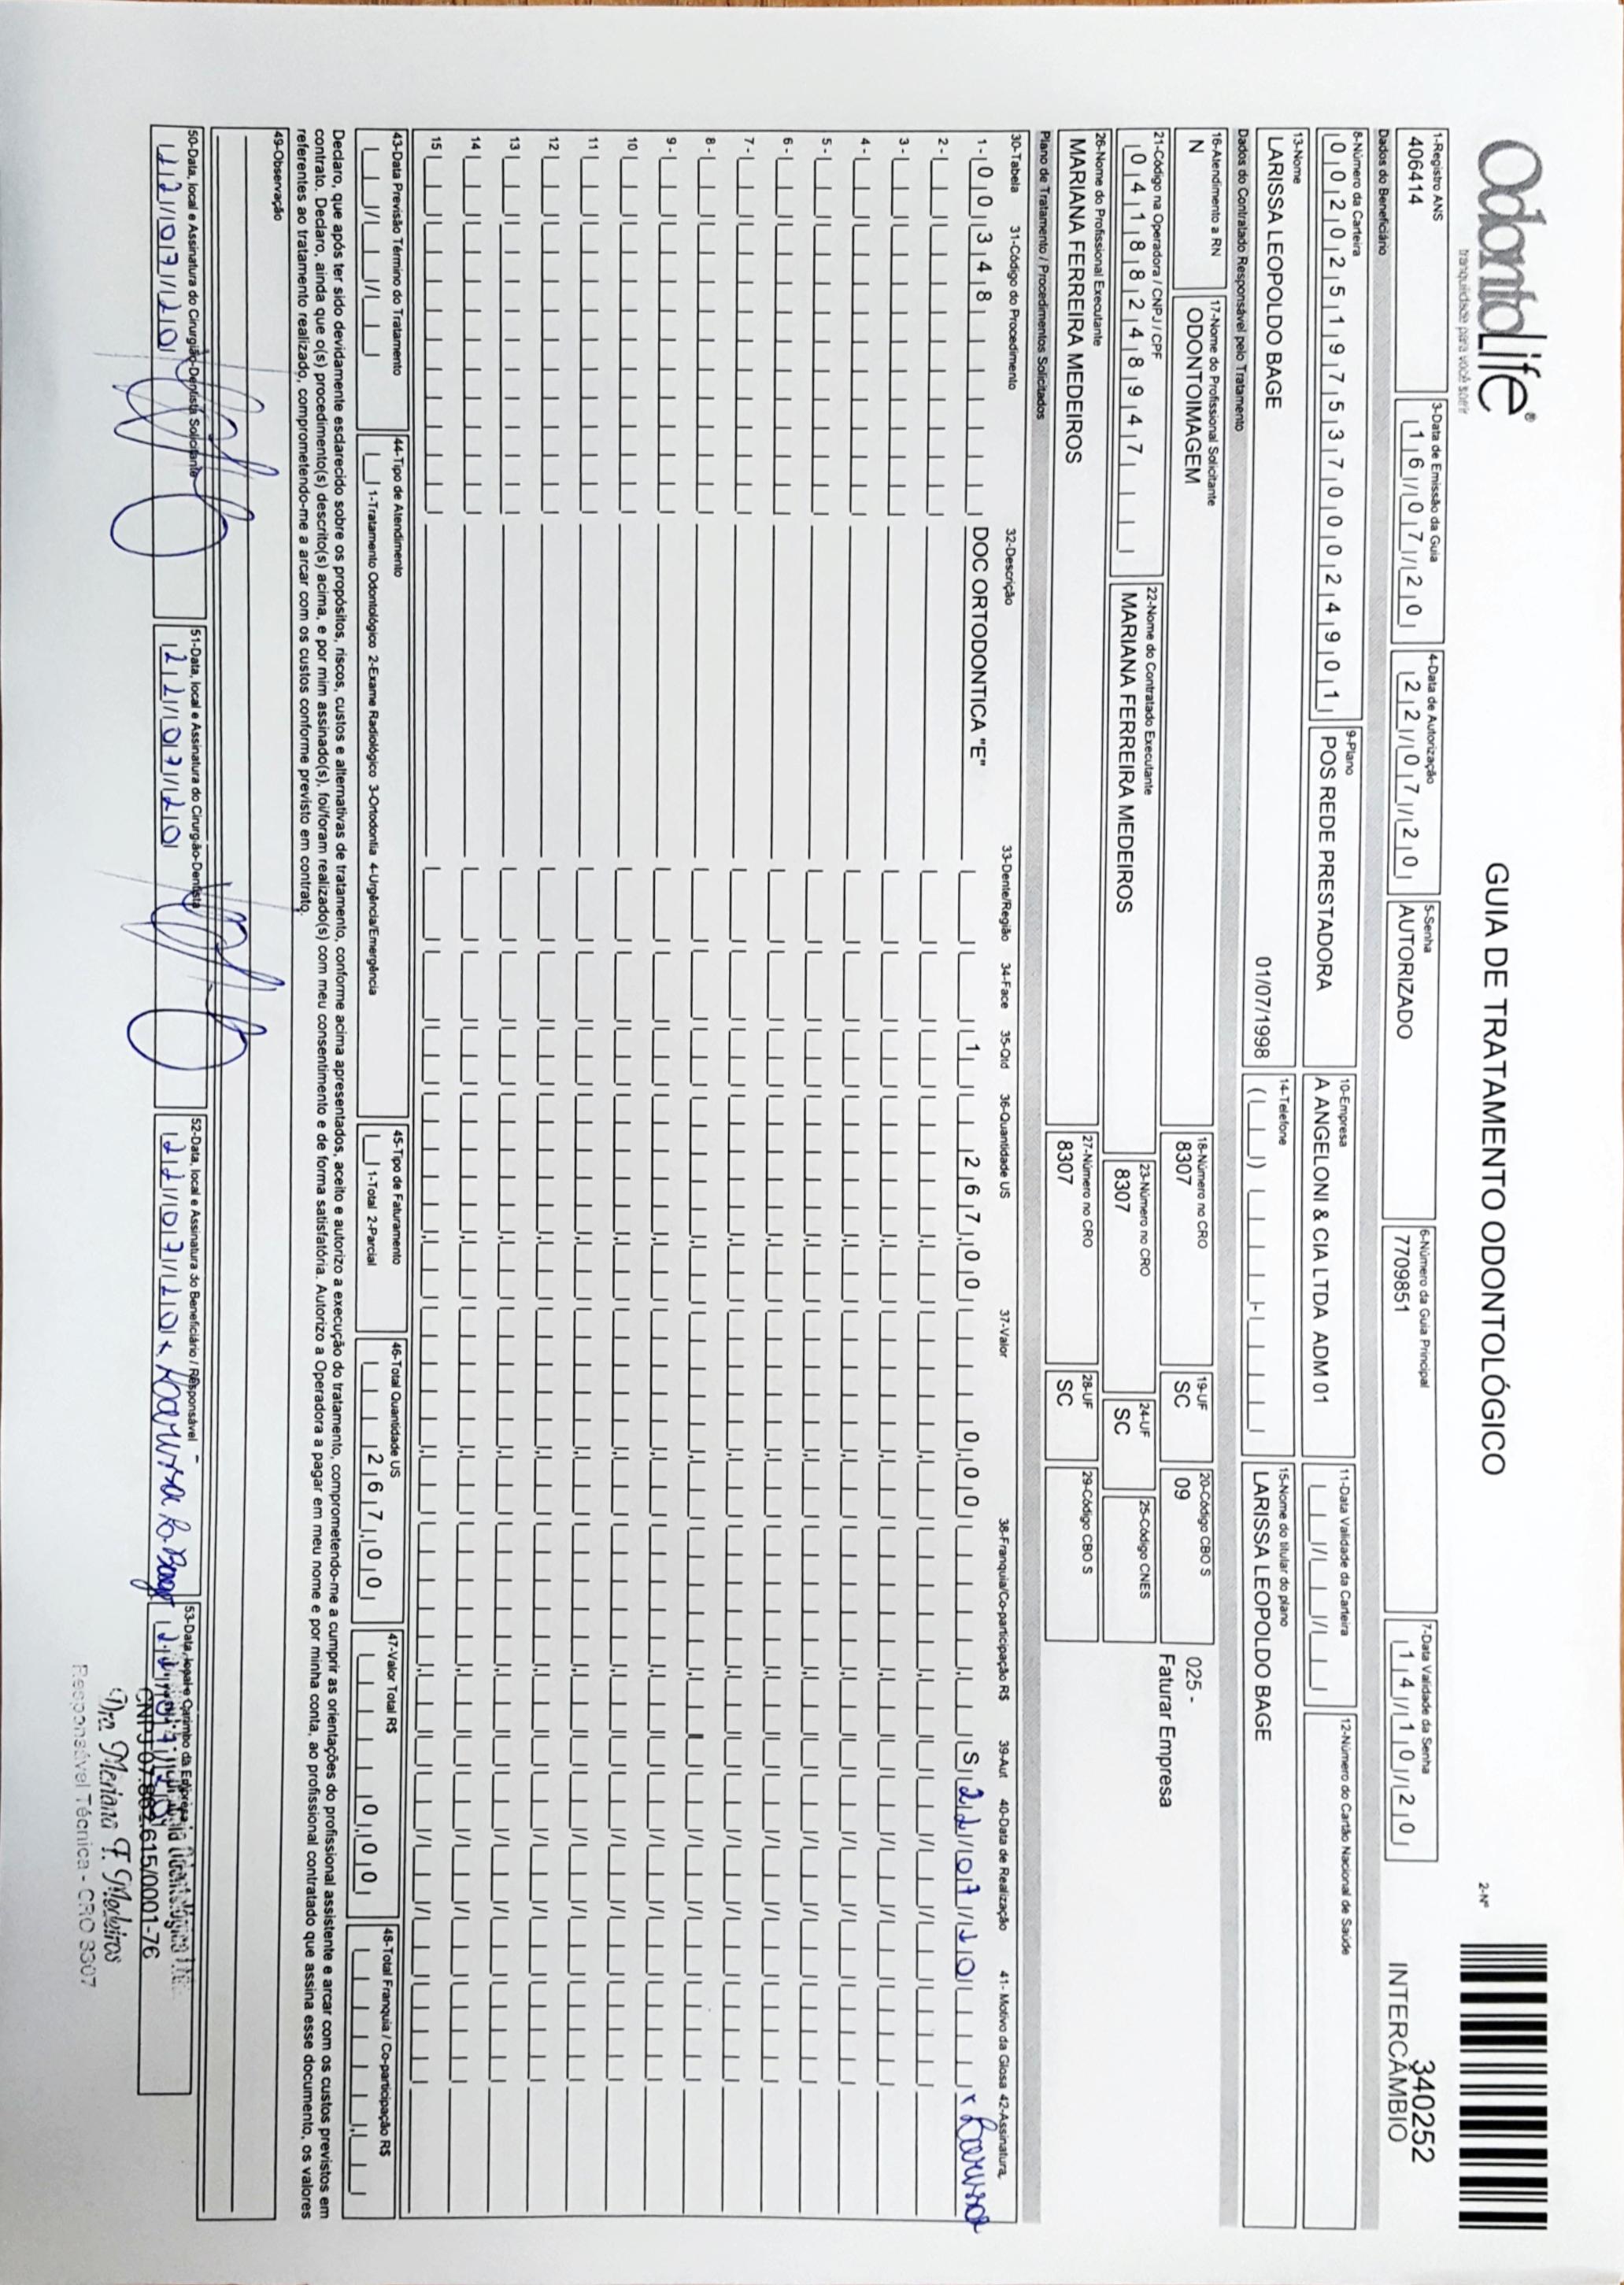 OdontoLife®
tranquilidade para você sorrir
GUIA DE TRATAMENTO ODONTOLÓGICO
2-Nº
340252
INTERCÂMBIO
1-Registro ANS
406414
3-Data de Emissão da Guia
16/07/20
4-Data de Autorização
22/07/20
5-Senha
AUTORIZADO
6-Número da Guia Principal
7709851
7-Data Validade da Senha
14/10/20
Dados do Beneficiário
8-Número da Carteira
00202519753700024901
9-Plano
POS REDE PRESTADORA
10-Empresa
A ANGELONI & CIA LTDA ADM 01
11-Data Validade da Carteira
12-Número do Cartão Nacional de Saúde
13-Nome
LARISSA LEOPOLDO BAGE
01/07/1998
14-Telefone
15-Nome do titular do plano
LARISSA LEOPOLDO BAGE
Dados do Contratado Responsável pelo Tratamento
16-Atendimento a RN
N
17-Nome do Profissional Solicitante
ODONTOIMAGEM
18-Número no CRO
8307
19-UF
SC
20-Código CBO S
09
025 -
Faturar Empresa
21-Código na Operadora / CNPJ / CPF
04188248947
22-Nome do Contratado Executante
MARIANA FERREIRA MEDEIROS
23-Número no CRO
8307
24-UF
SC
25-Código CNES
26-Nome do Profissional Executante
MARIANA FERREIRA MEDEIROS
27-Número no CRO
8307
28-UF
SC
29-Código CBO S
Plano de Tratamento / Procedimentos Solicitados
30-Tabela 31-Código do Procedimento 32-Descrição 33-Dente/Região 34-Face 35-Qtd 36-Quantidade US 37-Valor 38-Franquia/Co-participação R$ 39-Aut 40-Data de Realização 41- Motivo da Glosa 42-Assinatura
1- 00348 DOC ORTODONTICA "E" 1 267,00 0,00 S 22/07/20 x Larissa
2 -
3 -
4 -
5 -
6 -
7 -
8 -
9 -
10
11
12
13
14
15
43-Data Previsão Término do Tratamento
44-Tipo de Atendimento
1-Tratamento Odontológico 2-Exame Radiológico 3-Ortodontia 4-Urgência/Emergência
45-Tipo de Faturamento
1-Total 2-Parcial
46-Total Quantidade US
267,00
47-Valor Total R$
0,00
48-Total Franquia / Co-participação R$
Declaro, que após ter sido devidamente esclarecido sobre os propósitos, riscos, custos e alternativas de tratamento, conforme acima apresentados, aceito e autorizo a execução do tratamento, comprometendo-me a cumprir as orientações do profissional assistente e arcar com os custos previstos em
contrato. Declaro, ainda que o(s) procedimento(s) descrito(s) acima, e por mim assinado(s), foi/foram realizado(s) com meu consentimento e de forma satisfatória. Autorizo a Operadora a pagar em meu nome e por minha conta, ao profissional contratado que assina esse documento, os valores
referentes ao tratamento realizado, comprometendo-me a arcar com os custos conforme previsto em contrato.
49-Observação
50-Data, local e Assinatura do Cirurgião-Dentista Solicitante
22/07/20
51-Data, local e Assinatura do Cirurgião-Dentista
22/07/20
52-Data, local e Assinatura do Beneficiário / Responsável
22/07/20 x Larissa L. Bage
53-Data, local e Carimbo da Empresa
22/07/20
CNPJ 07.862.615/0001-76
Dra. Mariana F. Medeiros
Responsável Técnica - CRO 8307